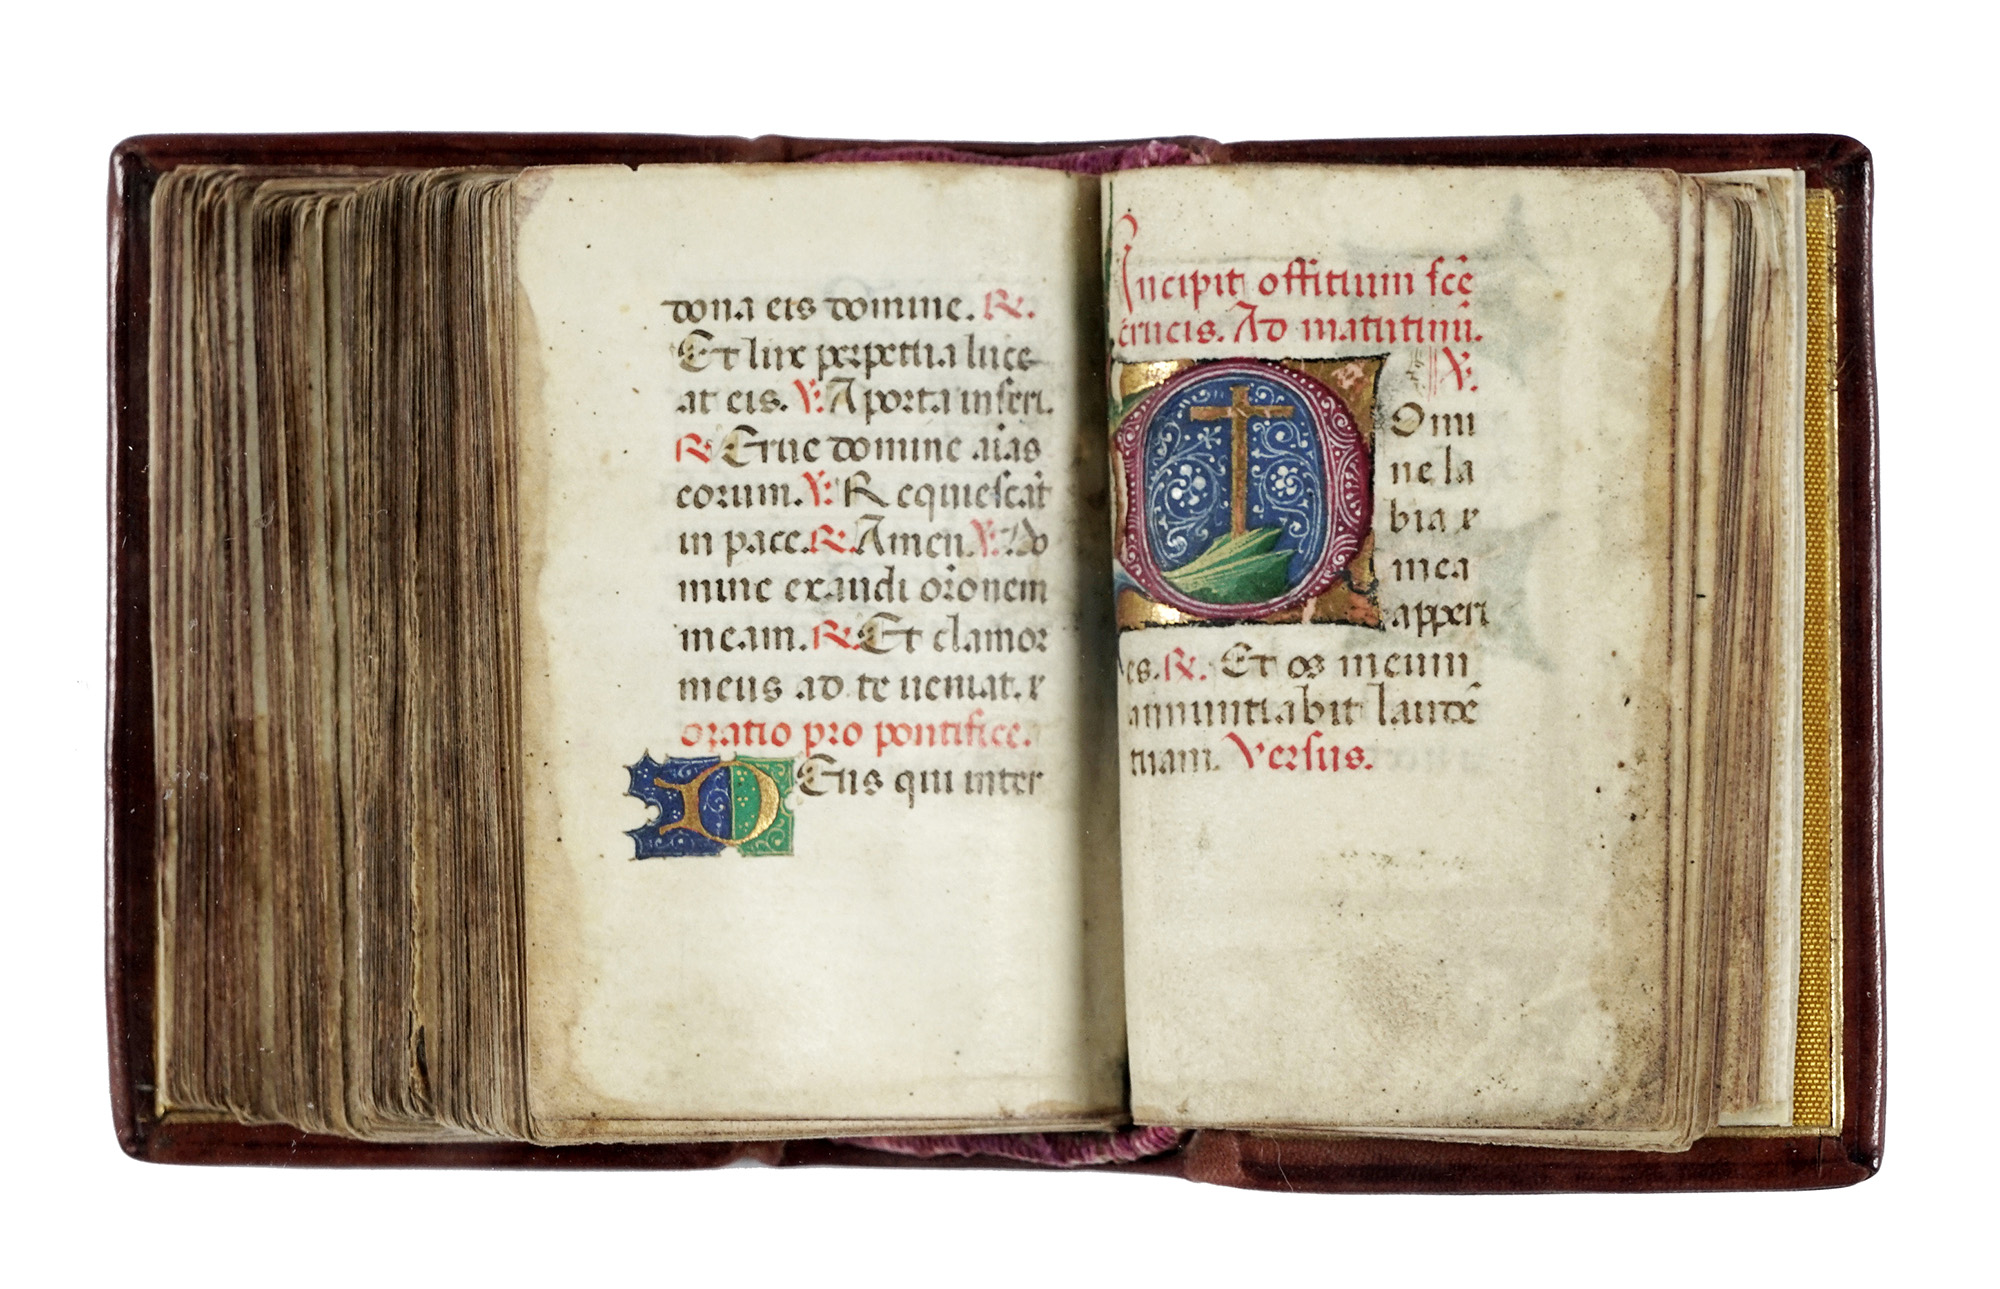 dona eis domine. R.
Et lux perpetua luce
at eis. V. A porta inferi.
R. Erue domine aĩas
eorum. V. Requiescãt
in pace. R. Amen. V. Do
mine exaudi orõnem
meam. R. Et clamor
meus ad te ueniat.
oratio pro pontifice.
DEus qui inter
Incipit offitium scẽ
crucis. Ad matutinũ.
V.
Domi
ne la
bia
mea
apperi
es. R. Et os meum
annuntiabit laudẽ
tuam. Versus.